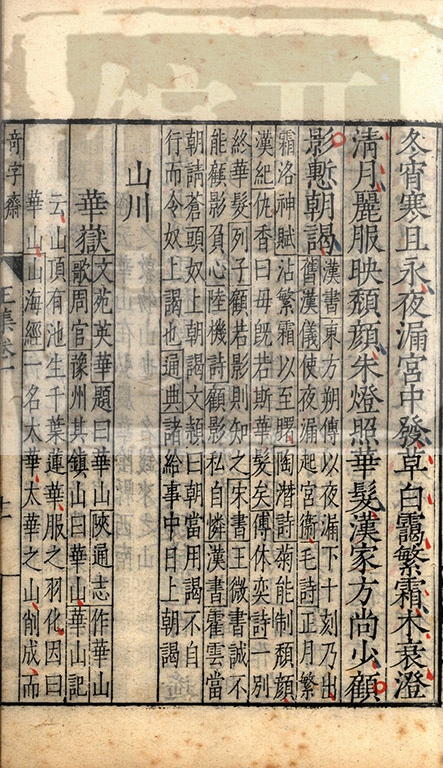 冬宵寒且永夜漏宮中發草白靄繁霜木衰澄
清月麗服映頹顔朱燈照華髮漢家方尚少顧
影慙朝謁
漢書東方朔傳以夜漏下十刻乃出
舊漢儀使夜漏起宮衛毛詩正月繁
霜洛神賦沾繁霜以至曙陶潛詩菊能制頹顔
漢紀仇香曰毋既若斯華髮矣傅休奕詩一別
終華髮列子顧若影則知之宋書王微書誠不
能顧影負心陸機詩顧影私自憐漢書霍雲當
朝請蒼頭奴上朝謁文頴曰朝當用謁不自
行而令奴上謁也通典諸給事中日上朝謁
山川
華嶽
文苑英華題曰華山陝通志作華山
歌周官豫州其鎮山曰華山華山記
云山頂有池生千葉蓮華服之羽化因曰
華山山海經一名太華太華之山削成而
奇字齋
王集卷一